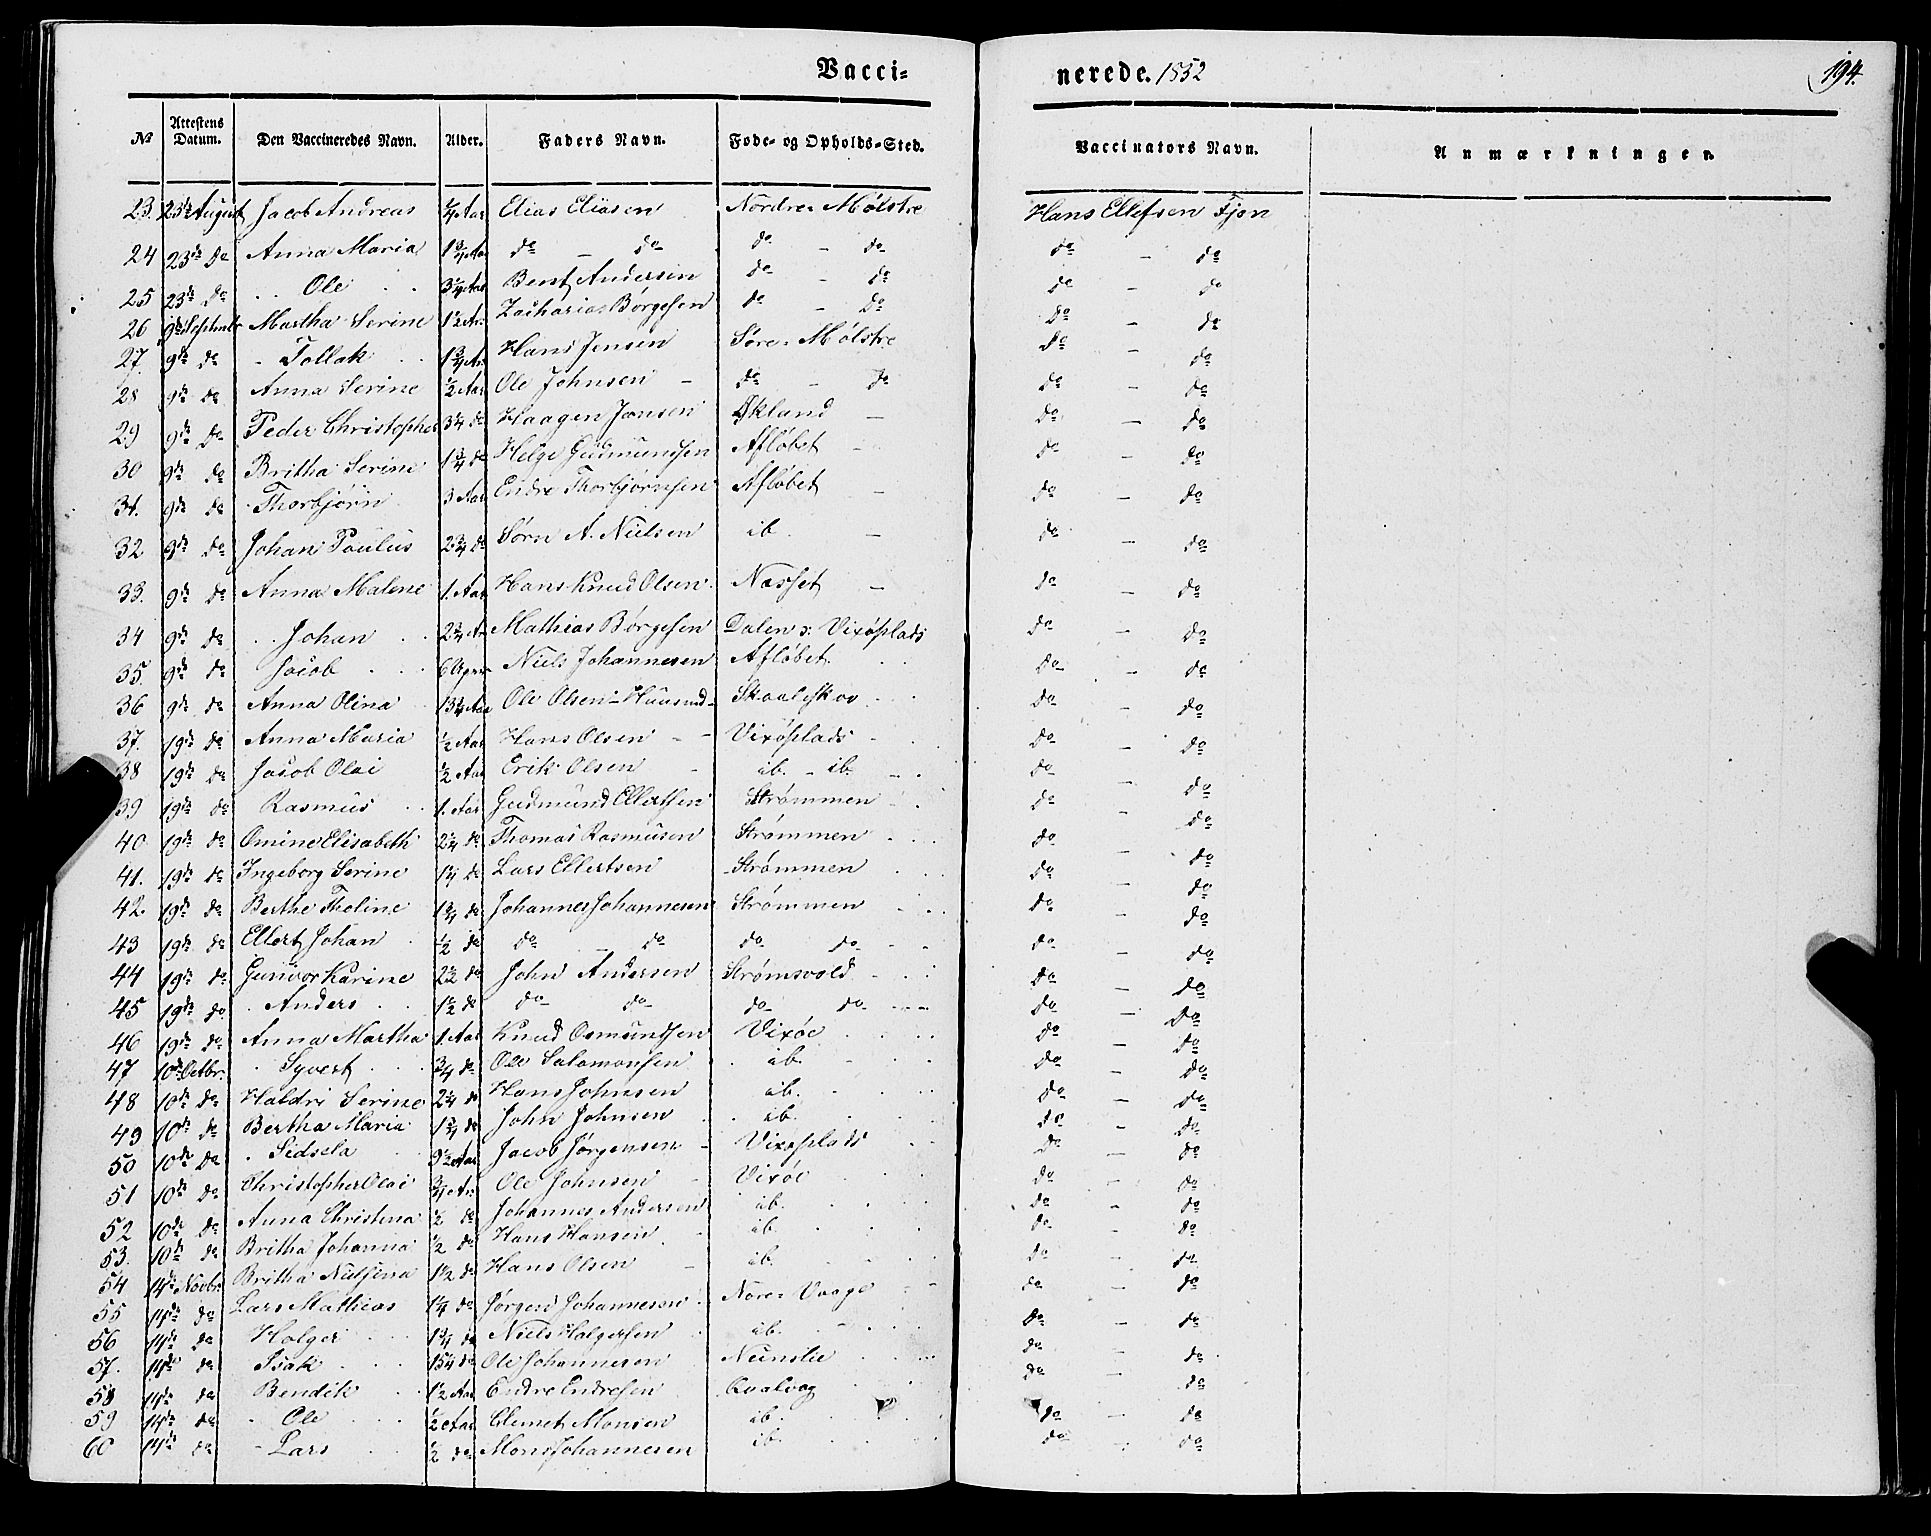 Vacci- nerede. 1852 194.
№ Attestens Datum. Den Vaccineredes Navn. Alder. Faders Navn. Føde- og Opholds-Sted. Vaccinators Navn. Anmærkninger.
23. 23de August Jacob Andreas ¾ Aar Elias Eliasen Nordre Mølstre Hans Ellefsen Fjon
24 23de do Anna Maria 1¾ Aar do - do do - do do - do
25 23de do Ole 3¼ Aar Bent Andersen do - do do - do
26 9de Septembr Martha Serine 1½ Ar. Zacharias Børgesen do - do do - do
27. 9de do Tollak 1¾ Ar. Hans Jensen Søre Mølstre do - do
28 9de do Anna Serine ½ Aar Ole Johnsen do - do do - do
29 9de do Peder Christopher 3¼ do Haagen Jansen Økland do - do
30 9de do Britha Serine 1¾ do Helge Gudmundsen Afløbet do - do
31. 9de do Thorbjørn 3 Aar Endre Thorbjørnsen Afløbet do - do
32 9de do Johan Paulus 2¾ do Sørn A. Nielsen ib. do - do
33. 9de do Anna Malene 1. Aar Hans Knud Olsen Næsset do - do
34 9de do Johan 2¾ Ar Mathias Børgesen Dalen s: Vixøplads do - do
35. 9de do Jacob Niels Johannesen Afløbet do - do
36 9de do Anna Olina Ole Olsen Haasund Skaaleskov do - do
37. 19de do Anna Maria ½ Aar Hans Olsen Vixøplads do - do
38 19de do Jacob Olai ½ Aar Erik Olsen ib. - ib. do - do
39 19de do Rasmus 1. Aar Gudmund Ellertsen Strømmen do - do
40 19de do Omine Elisabeth 2¼ do Thomas Rasmusen Strømmen do - do
41. 19de do Ingeborg Serine do Lars Ellertsen Strømmen do - do
42. 19de do Berthe Tholine 1¾ do Johannes Johannesen Strømmen do - do
43 19de do Ellert Johan ½ do do - do do do do - do
44 19de do Gunvor Karine 2½ do John Andersen Strømsvold do - do
45 19de do Anders 1½ do do do do do do - do
46 19de do Anna Martha 1 Aar Knud Osmundsen Vixøe do - do
47 10de Octbr. Syvert ¾ do Ole Salamonsen ib. do - do
48 10de do Haldri Serine 2¼ do Hans Johnsen ib. do - do
49 10de do Bertha Maria 1¾ do John Johnsen ib. do - do
50 10de do Sidsela 9½ Aar Jacob Jørgensen Vixøplads do - do
51 10de do Christopher Olai ¾ Ar. Ole Johnsen Vixøe do - do
52 10de do Anna Christina ½ do Johannes Andersen ib. do - do
53. 10de do Britha Johanna ½ do Hans Hansen ib. do - do
54 14de Novbr. Britha Nilsina 1½ do Hans Olsen ib. do - do
55 14de do Lars Mathias 1¼ do Jørgen Johannesen Nore Vaage do - do
56 14de do Holger 1¾ do Niels Holgersen ib. do - do
57. 14de do Isak do Ole Johannesen Neunslie do - do
58 14de do Bendik 1½ Aar Endre Endresen Qvalvag do - do
59 14de do Ole ½ Aar Clemet Monsen ib. do - do
60 14de do Lars ½ do Mons Johannesen ib. do - do